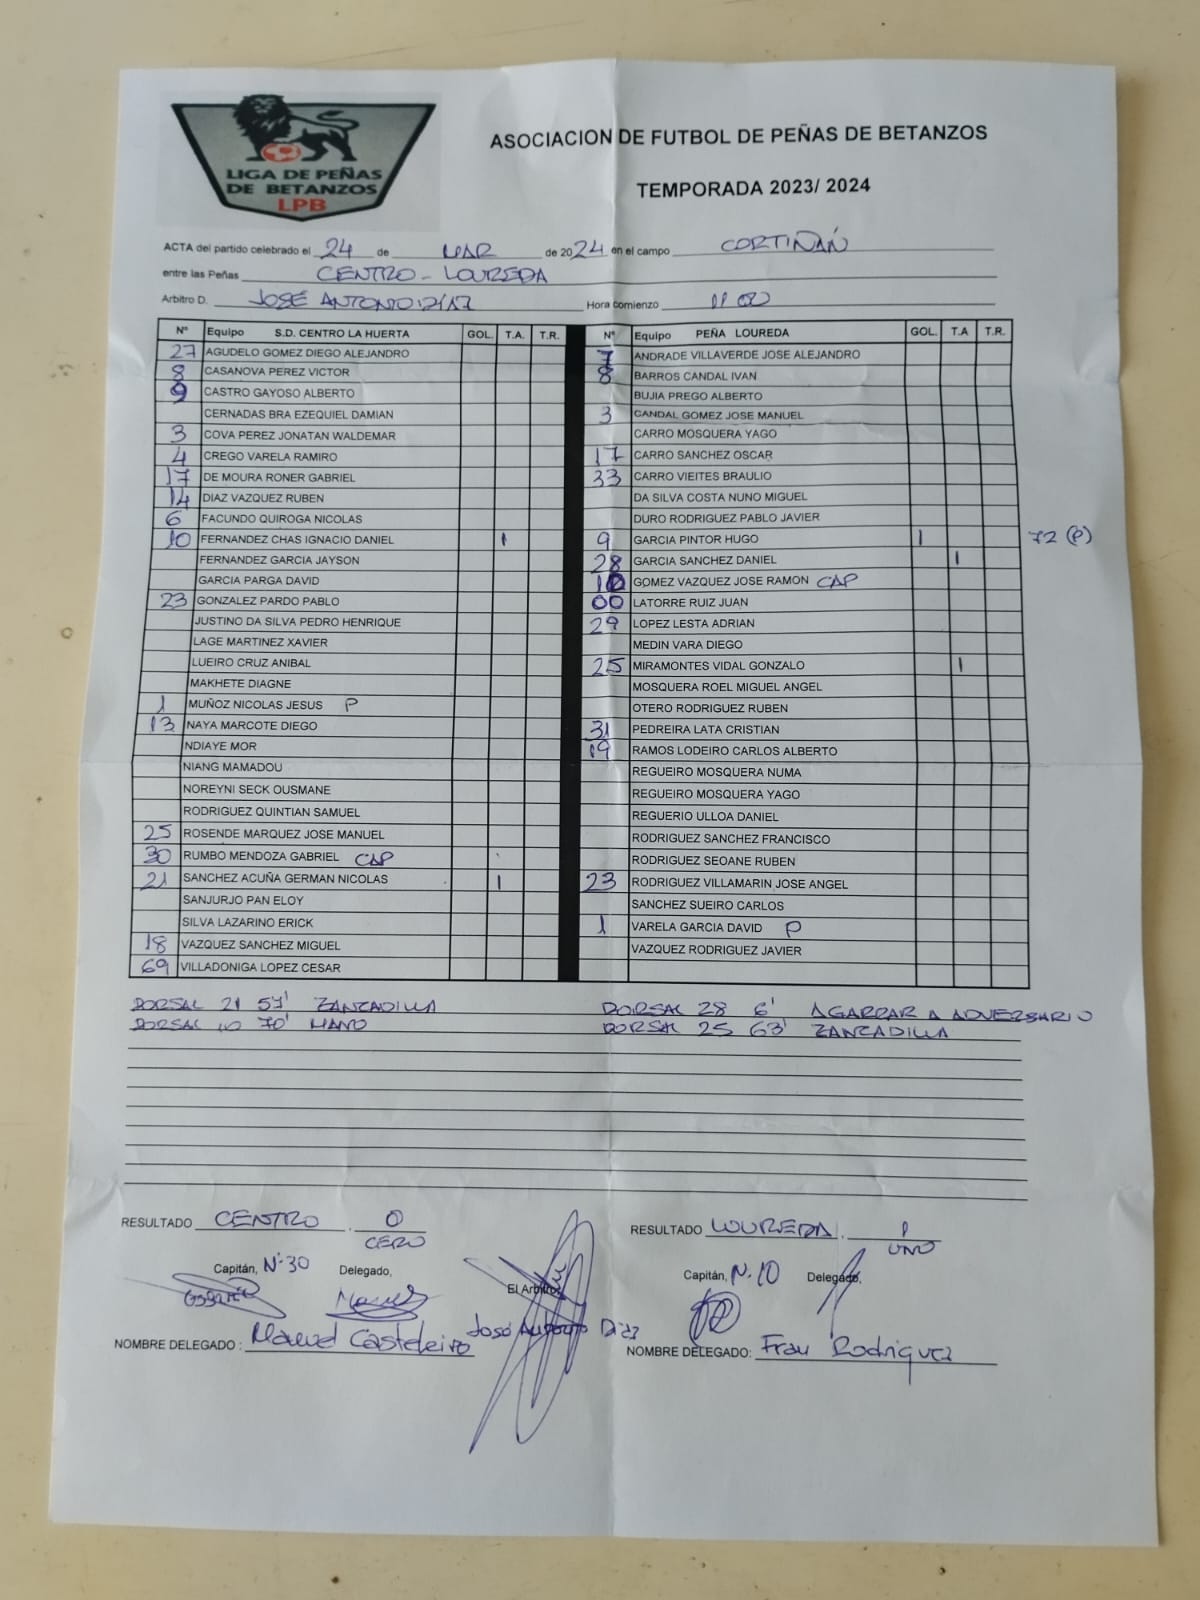 LIGA DE PEÑAS
DE BETANZOS
LPB
ASOCIACION DE FUTBOL DE PEÑAS DE BETANZOS
TEMPORADA 2023/ 2024
ACTA del partido celebrado el 24 de MAR de 2024 en el campo CORTIÑÁN
entre las Peñas CENTRO - LOUREDA
Arbitro D. JOSÉ ANTONIO DÍAZ Hora comienzo 11 00
Nº Equipo S.D. CENTRO LA HUERTA GOL. T.A. T.R. Nº Equipo PEÑA LOUREDA GOL. T.A T.R.
27 AGUDELO GOMEZ DIEGO ALEJANDRO 7 ANDRADE VILLAVERDE JOSE ALEJANDRO
8 CASANOVA PEREZ VICTOR 8 BARROS CANDAL IVAN
9 CASTRO GAYOSO ALBERTO BUJIA PREGO ALBERTO
CERNADAS BRA EZEQUIEL DAMIAN 3 CANDAL GOMEZ JOSE MANUEL
3 COVA PEREZ JONATAN WALDEMAR CARRO MOSQUERA YAGO
4 CREGO VARELA RAMIRO 17 CARRO SANCHEZ OSCAR
17 DE MOURA RONER GABRIEL 33 CARRO VIEITES BRAULIO
14 DIAZ VAZQUEZ RUBEN DA SILVA COSTA NUNO MIGUEL
6 FACUNDO QUIROGA NICOLAS DURO RODRIGUEZ PABLO JAVIER
10 FERNANDEZ CHAS IGNACIO DANIEL 1 9 GARCIA PINTOR HUGO 1 72 (P)
FERNANDEZ GARCIA JAYSON 28 GARCIA SANCHEZ DANIEL 1
GARCIA PARGA DAVID 10 GOMEZ VAZQUEZ JOSE RAMON CAP
23 GONZALEZ PARDO PABLO 00 LATORRE RUIZ JUAN
JUSTINO DA SILVA PEDRO HENRIQUE 29 LOPEZ LESTA ADRIAN
LAGE MARTINEZ XAVIER MEDIN VARA DIEGO
LUEIRO CRUZ ANIBAL 25 MIRAMONTES VIDAL GONZALO 1
MAKHETE DIAGNE MOSQUERA ROEL MIGUEL ANGEL
1 MUÑOZ NICOLAS JESUS P OTERO RODRIGUEZ RUBEN
13 NAYA MARCOTE DIEGO 31 PEDREIRA LATA CRISTIAN
NDIAYE MOR 19 RAMOS LODEIRO CARLOS ALBERTO
NIANG MAMADOU REGUEIRO MOSQUERA NUMA
NOREYNI SECK OUSMANE REGUEIRO MOSQUERA YAGO
RODRIGUEZ QUINTIAN SAMUEL REGUERIO ULLOA DANIEL
25 ROSENDE MARQUEZ JOSE MANUEL RODRIGUEZ SANCHEZ FRANCISCO
30 RUMBO MENDOZA GABRIEL CAP RODRIGUEZ SEOANE RUBEN
21 SANCHEZ ACUÑA GERMAN NICOLAS 1 23 RODRIGUEZ VILLAMARIN JOSE ANGEL
SANJURJO PAN ELOY SANCHEZ SUEIRO CARLOS
SILVA LAZARINO ERICK 1 VARELA GARCIA DAVID P
18 VAZQUEZ SANCHEZ MIGUEL VAZQUEZ RODRIGUEZ JAVIER
69 VILLADONIGA LOPEZ CESAR
DORSAL 21 57' ZANCADILLA DORSAL 28 6' AGARRAR A ADVERSARIO
DORSAL 10 70' MANO DORSAL 25 63' ZANCADILLA
RESULTADO CENTRO . 0 RESULTADO LOUREDA . 1
CERO UNO
Capitán, Nº 30 Delegado, El Arbitro Capitán, N. 10 Delegado,
José Antonio Díaz
NOMBRE DELEGADO : Manuel Casteleiro NOMBRE DELEGADO: Fran Rodriguez